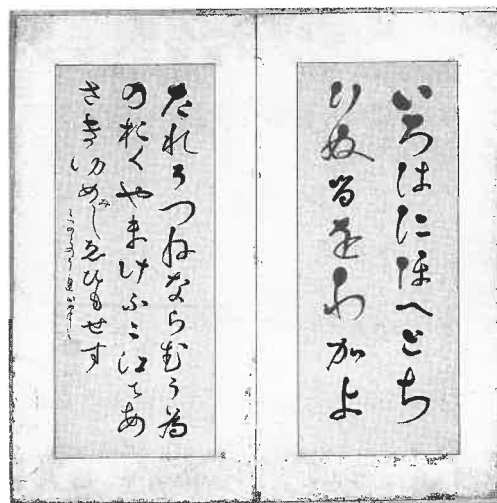 いろはにほへとち
りぬるをわかよ
たれそつねならむうゐ
のおくやまけふこえてあ
さきゆめみしゑひもせす